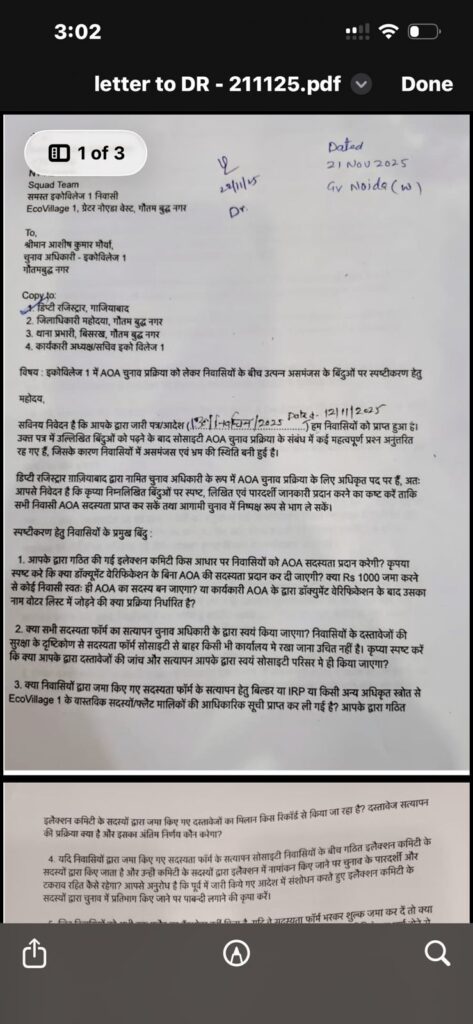 3:02
letter to DR - 211125.pdf
Done
1 of 3
Dated
21 Nov 2025
Gr Noida (W)
Dr.
Squad Team
समस्त इकोविलेज 1 निवासी
EcoVillage 1, ग्रेटर नोएडा वेस्ट, गौतम बुद्ध नगर
To,
श्रीमान आशीष कुमार मौर्या,
चुनाव अधिकारी - इकोविलेज 1
गौतमबुद्ध नगर
Copy to:
1. डिप्टी रजिस्ट्रार, गाजियाबाद
2. जिलाधिकारी महोदया, गौतम बुद्ध नगर
3. थाना प्रभारी, बिसरख, गौतम बुद्ध नगर
4. कार्यकारी अध्यक्ष/सचिव इको विलेज 1
विषय : इकोविलेज 1 में AOA चुनाव प्रक्रिया को लेकर निवासियों के बीच उत्पन्न असमंजस के बिंदुओं पर स्पष्टीकरण हेतु
महोदय,
सविनय निवेदन है कि आपके द्वारा जारी पत्र/आदेश ( /2025 Dated. 12/11/2025 ) हम निवासियों को प्राप्त हुआ है।
उक्त पत्र में उल्लिखित बिंदुओं को पढ़ने के बाद सोसाइटी AOA चुनाव प्रक्रिया के संबंध में कई महत्वपूर्ण प्रश्न अनुत्तरित
रह गए हैं, जिसके कारण निवासियों में असमंजस एवं भ्रम की स्थिति बनी हुई है।
डिप्टी रजिस्ट्रार ग़ाजियाबाद द्वारा नामित चुनाव अधिकारी के रूप में AOA चुनाव प्रक्रिया के लिए अधिकृत पद पर हैं, अतः
आपसे निवेदन है कि कृप्या निम्नलिखित बिंदुओं पर स्पष्ट, लिखित एवं पारदर्शी जानकारी प्रदान करने का कष्ट करें ताकि
सभी निवासी AOA सदस्यता प्राप्त कर सकें तथा आगामी चुनाव में निष्पक्ष रूप से भाग ले सकें।
स्पष्टीकरण हेतु निवासियों के प्रमुख बिंदु :
1. आपके द्वारा गठित की गई इलेक्शन कमिटी किस आधार पर निवासियों को AOA सदस्यता प्रदान करेगी? कृपया
स्पष्ट करे कि क्या डॉक्यूमेंट वेरिफिकेशन के बिना AOA की सदस्यता प्रदान कर दी जाएगी? क्या Rs 1000 जमा करने
से कोई निवासी स्वतः ही AOA का सदस्य बन जाएगा? या कार्यकारी AOA के द्वारा डॉक्युमेंट वेरिफिकेशन के बाद उसका
नाम वोटर लिस्ट में जोड़ने की क्या प्रक्रिया निर्धारित है?
2. क्या सभी सदस्यता फॉर्म का सत्यापन चुनाव अधिकारी के द्वारा स्वयं किया जाएगा? निवासियों के दस्तावेजों की
सुरक्षा के दृष्टिकोण से सदस्यता फॉर्म सोसाइटी से बाहर किसी भी कार्यालय मे रखा जाना उचित नहीं है। कृप्या स्पष्ट करें
कि क्या आपके द्वारा दस्तावेजों की जांच और सत्यापन आपके द्वारा स्वयं सोसाइटी परिसर मे ही किया जाएगा?
3. क्या निवासियों द्वारा जमा किए गए सदस्यता फॉर्म के सत्यापन हेतु बिल्डर या IRP या किसी अन्य अधिकृत स्त्रोत से
EcoVillage 1 के वास्तविक सदस्यों/फ्लैट मालिकों की आधिकारिक सूची प्राप्त कर ली गई है? आपके द्वारा गठित
इलैक्शन कमिटी के सदस्यों द्वारा जमा किए गए दस्तावेजों का मिलान किस रिकॉर्ड से किया जा रहा है? दस्तावेज सत्यापन
की प्रक्रिया क्या है और इसका अंतिम निर्णय कौन करेगा?
4. यदि निवासियों द्वारा जमा किए गए सदस्यता फॉर्म के सत्यापन सोसाइटी निवासियों के बीच गठित इलैक्शन कमिटी के
सदस्यों द्वारा किए जाता है और उन्ही कमिटी के सदस्यों द्वारा इलैक्शन में नामांकन किए जाने पर चुनाव के पारदर्शी और
टकराव रहित कैसे रहेगा? आपसे अनुरोध है कि पूर्व में जारी किये गए आदेश में संशोधन करते हुए इलैक्शन कमिटी के
सदस्यों द्वारा चुनाव में प्रतिभाग किए जाने पर पाबन्दी लगाने की कृपा करें।
सदस्यता फॉर्म भरकर शुल्क जमा कर दें तो क्या